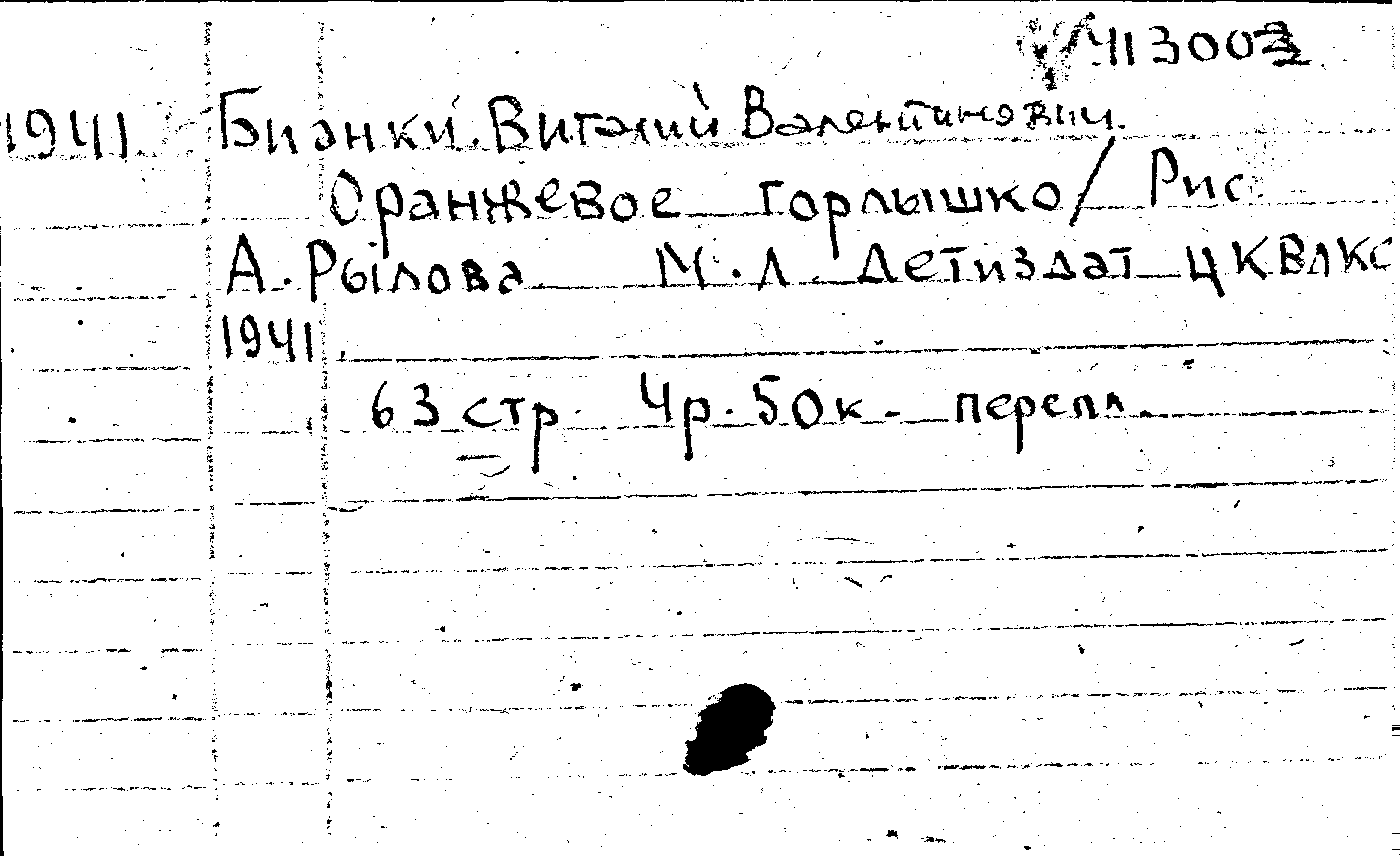 413003
1941 Бианки. Виталий Валентинович.
Оранжевое горлышко / Рис.
А. Рылова М. Л. Детиздат ЦКВЛКС
1941.
63 стр. 4р. 50к - перепл.